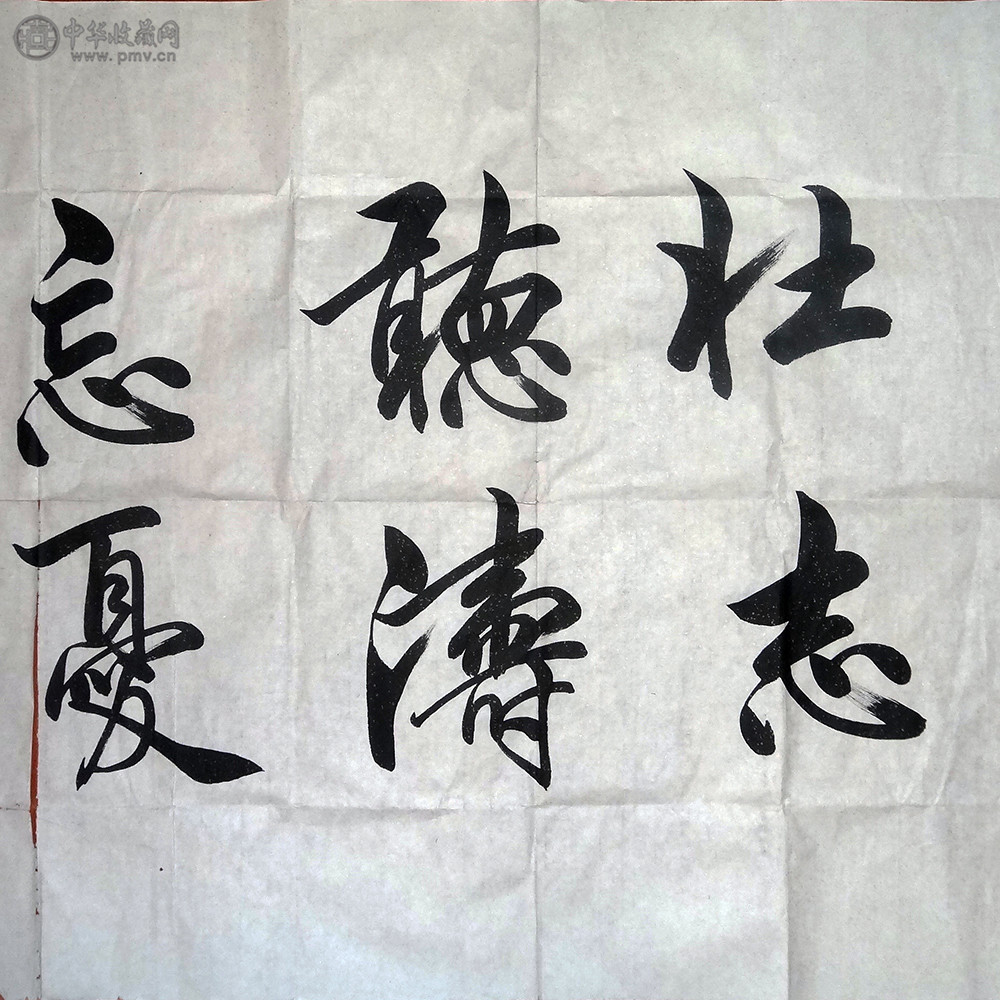 中华收藏网
www.pmv.cn
壮志
聽濤
忘憂